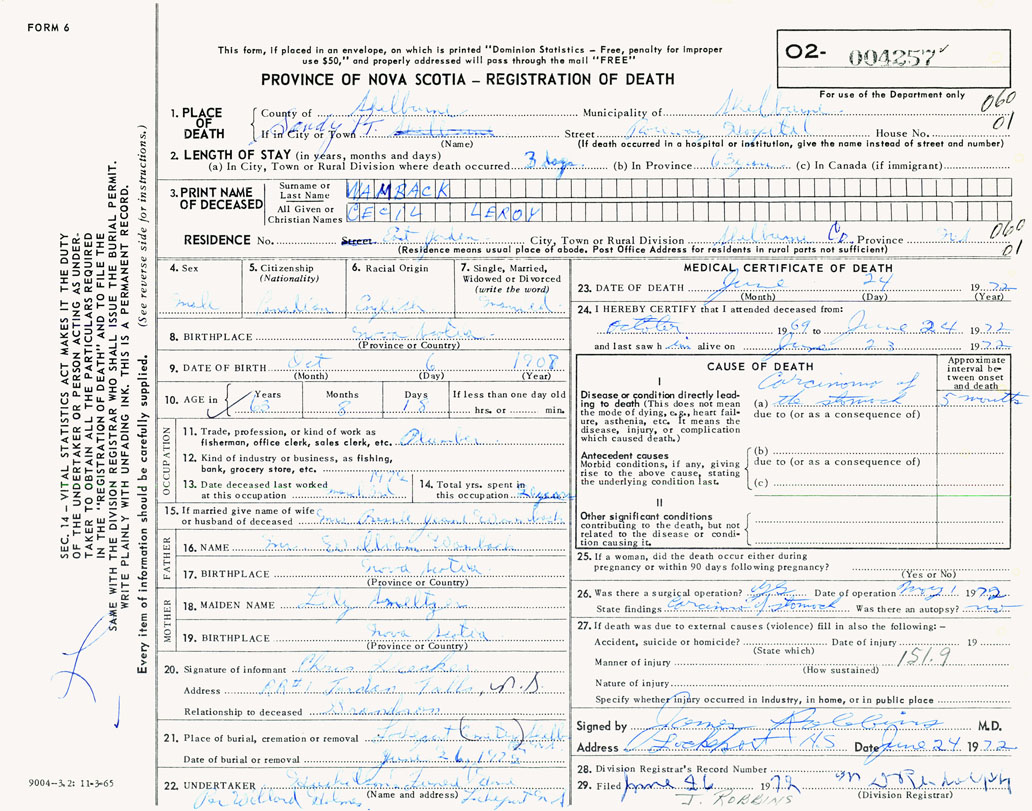 FORM 6
This form, if placed in an envelope, on which is printed "Dominion Statistics – Free, penalty for improper
use $50," and properly addressed will pass through the mail "FREE"
PROVINCE OF NOVA SCOTIA – REGISTRATION OF DEATH
O2- 004257
For use of the Department only
060
01
1. PLACE OF DEATH
County of Shelburne Municipality of Shelburne
If in City or Town Sandy Pt. Street Roseway Hospital House No.
(Name) (If death occurred in a hospital or institution, give the name instead of street and number)
2. LENGTH OF STAY (in years, months and days)
(a) In City, Town or Rural Division where death occurred 3 days (b) In Province 63 (c) In Canada (if immigrant)
3. PRINT NAME OF DECEASED
Surname or Last Name WAMBACK
All Given or Christian Names CECIL LEROY
RESIDENCE No. Street East Jordan City, Town or Rural Division Shelburne Co Province N.S.
060
01
(Residence means usual place of abode. Post Office Address for residents in rural parts not sufficient)
4. Sex
Male
5. Citizenship (Nationality)
Canadian
6. Racial Origin
English
7. Single, Married, Widowed or Divorced (write the word)
Married
8. BIRTHPLACE Nova Scotia
(Province or Country)
9. DATE OF BIRTH Oct 6 1908
(Month) (Day) (Year)
10. AGE in Years Months Days If less than one day old
63 8 18 hrs. or min.
OCCUPATION
11. Trade, profession, or kind of work as
fisherman, office clerk, sales clerk, etc. Plumber
12. Kind of industry or business, as fishing,
bank, grocery store, etc.
13. Date deceased last worked
at this occupation 1972
14. Total yrs. spent in
this occupation years
15. If married give name of wife
or husband of deceased Mrs Jean Wamback
FATHER
16. NAME Mr. William Wamback
17. BIRTHPLACE Nova Scotia
(Province or Country)
MOTHER
18. MAIDEN NAME Lily Smeltzer
19. BIRTHPLACE Nova Scotia
(Province or Country)
20. Signature of informant Chris
Address RR#1 Jordan Falls, N.S.
Relationship to deceased Grandson
21. Place of burial, cremation or removal Lockeport
Date of burial or removal June 26, 1972
22. UNDERTAKER Funeral Home
(Name and address)
Per Willard Holmes Lockeport N.S
MEDICAL CERTIFICATE OF DEATH
23. DATE OF DEATH June 24 1972
(Month) (Day) (Year)
24. I HEREBY CERTIFY that I attended deceased from:
October 1969 to June 24 1972
and last saw him alive on June 23 1972
CAUSE OF DEATH
Approximate interval between onset and death
I
Disease or condition directly leading to death (This does not mean the mode of dying, e.g., heart failure, asthenia, etc. It means the disease, injury, or complication which caused death.)
Carcinoma of
(a) the stomach 5 months
due to (or as a consequence of)
Antecedent causes
Morbid conditions, if any, giving rise to the above cause, stating the underlying condition last.
(b)
due to (or as a consequence of)
(c)
II
Other significant conditions
contributing to the death, but not related to the disease or condition causing it.
25. If a woman, did the death occur either during
pregnancy or within 90 days following pregnancy?
(Yes or No)
26. Was there a surgical operation? yes Date of operation May 1 1972
State findings Carcinoma of stomach Was there an autopsy? no
27. If death was due to external causes (violence) fill in also the following: –
Accident, suicide or homicide? Date of injury 19
(State which)
Manner of injury 151.9
(How sustained)
Nature of injury
Specify whether injury occurred in Industry, in home, or in public place
Signed by James Robbins M.D.
Address Lockeport NS Date June 24 1972
28. Division Registrar's Record Number
29. Filed June 26 1972
(Division Registrar)
J. ROBBINS
SEC. 14 – VITAL STATISTICS ACT MAKES IT THE DUTY
OF THE UNDERTAKER OR PERSON ACTING AS UNDER-
TAKER TO OBTAIN ALL THE PARTICULARS REQUIRED
IN THE "REGISTRATION OF DEATH" AND TO FILE THE
SAME WITH THE DIVISION REGISTRAR WHO SHALL ISSUE THE BURIAL PERMIT.
WRITE PLAINLY WITH UNFADING INK. THIS IS A PERMANENT RECORD.
Every item of information should be carefully supplied. (See reverse side for instructions.)
9004-3.2: 11-3-65